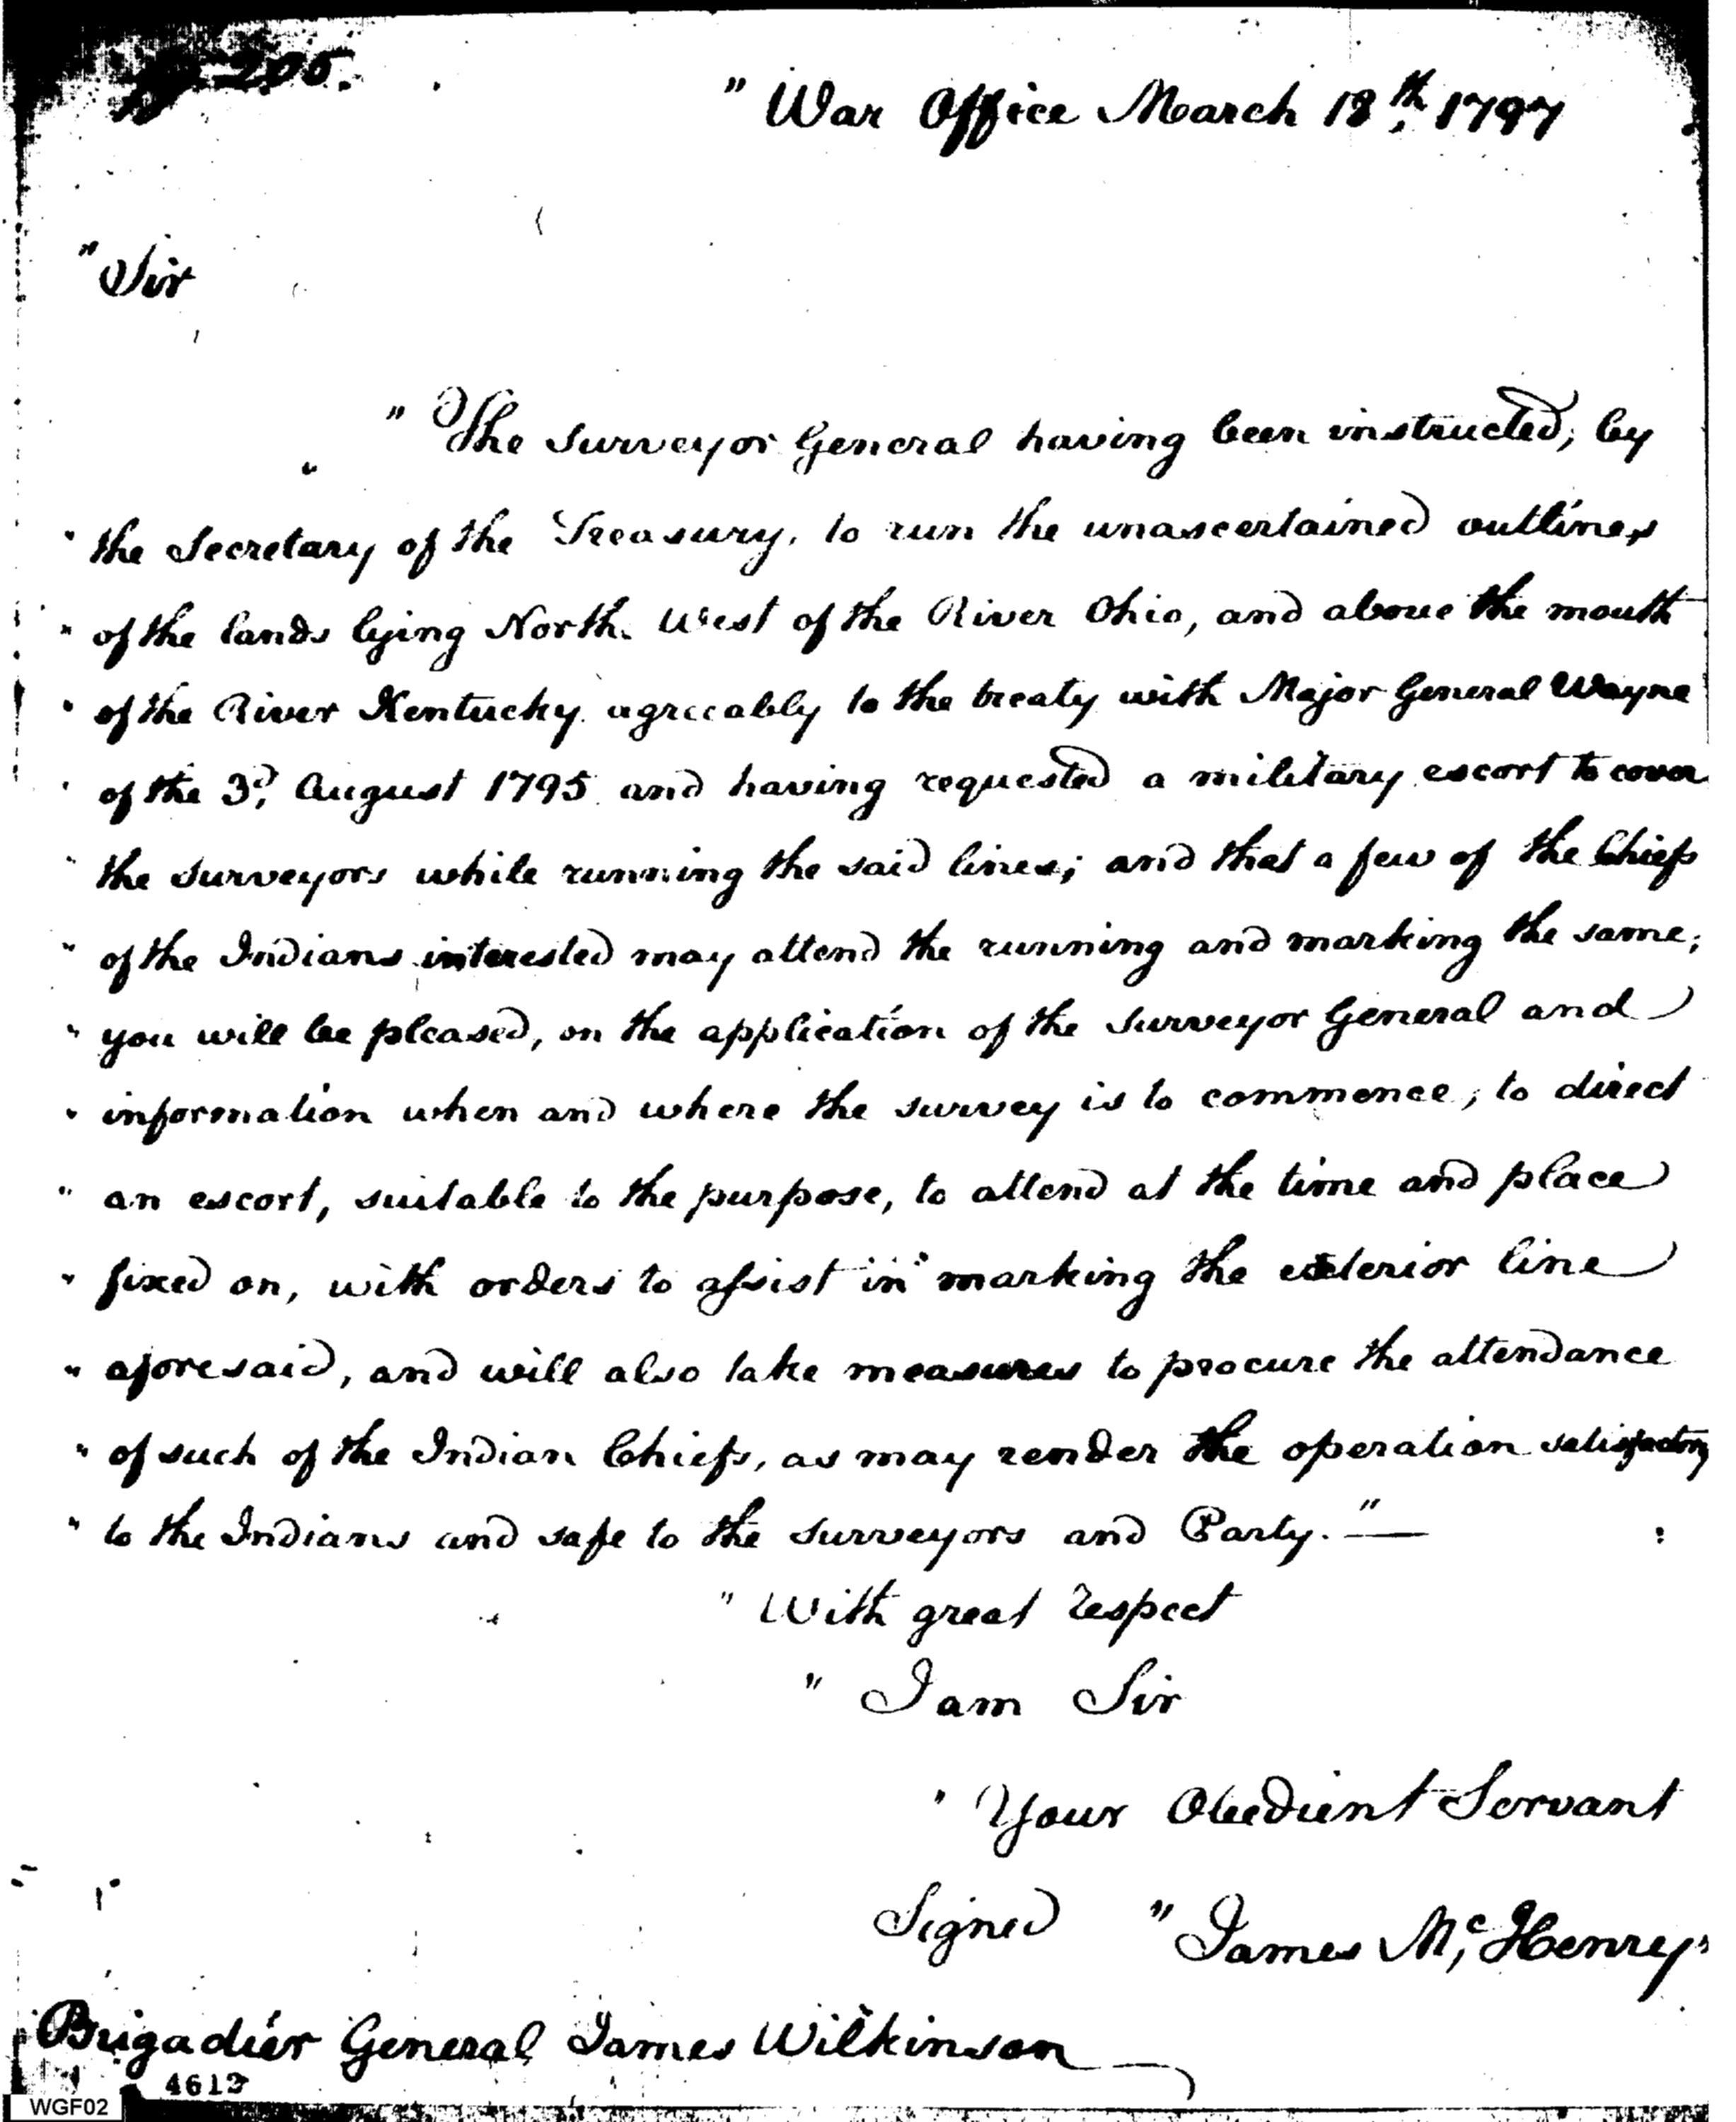 205.
" War Office March 18th. 1797
" Sir
" The Surveyor General having been instructed, by
" the Secretary of the Treasury, to run the unascertained outlines
" of the lands lying North. West of the River Ohio, and above the mouth
" of the River Kentucky agreeably to the treaty with Major General Wayne
" of the 3d. August 1795 and having requested a military escort to cover
" the surveyors while running the said lines; and that a few of the Chiefs
" of the Indians interested may attend the running and marking the same;
" you will be pleased, on the application of the Surveyor General and
" information when and where the survey is to commence, to direct
" an escort, suitable to the purpose, to attend at the time and place
" fixed on, with orders to assist in marking the exterior line
" aforesaid, and will also take measures to procure the attendance
" of such of the Indian Chiefs, as may render the operation satisfactory
" to the Indians and safe to the surveyors and Party. "—
" With great respect
" I am Sir
" Your Obedient Servant
Signed " James Mc. Henry "
Brigadier General James Wilkinson
4612
WGF02